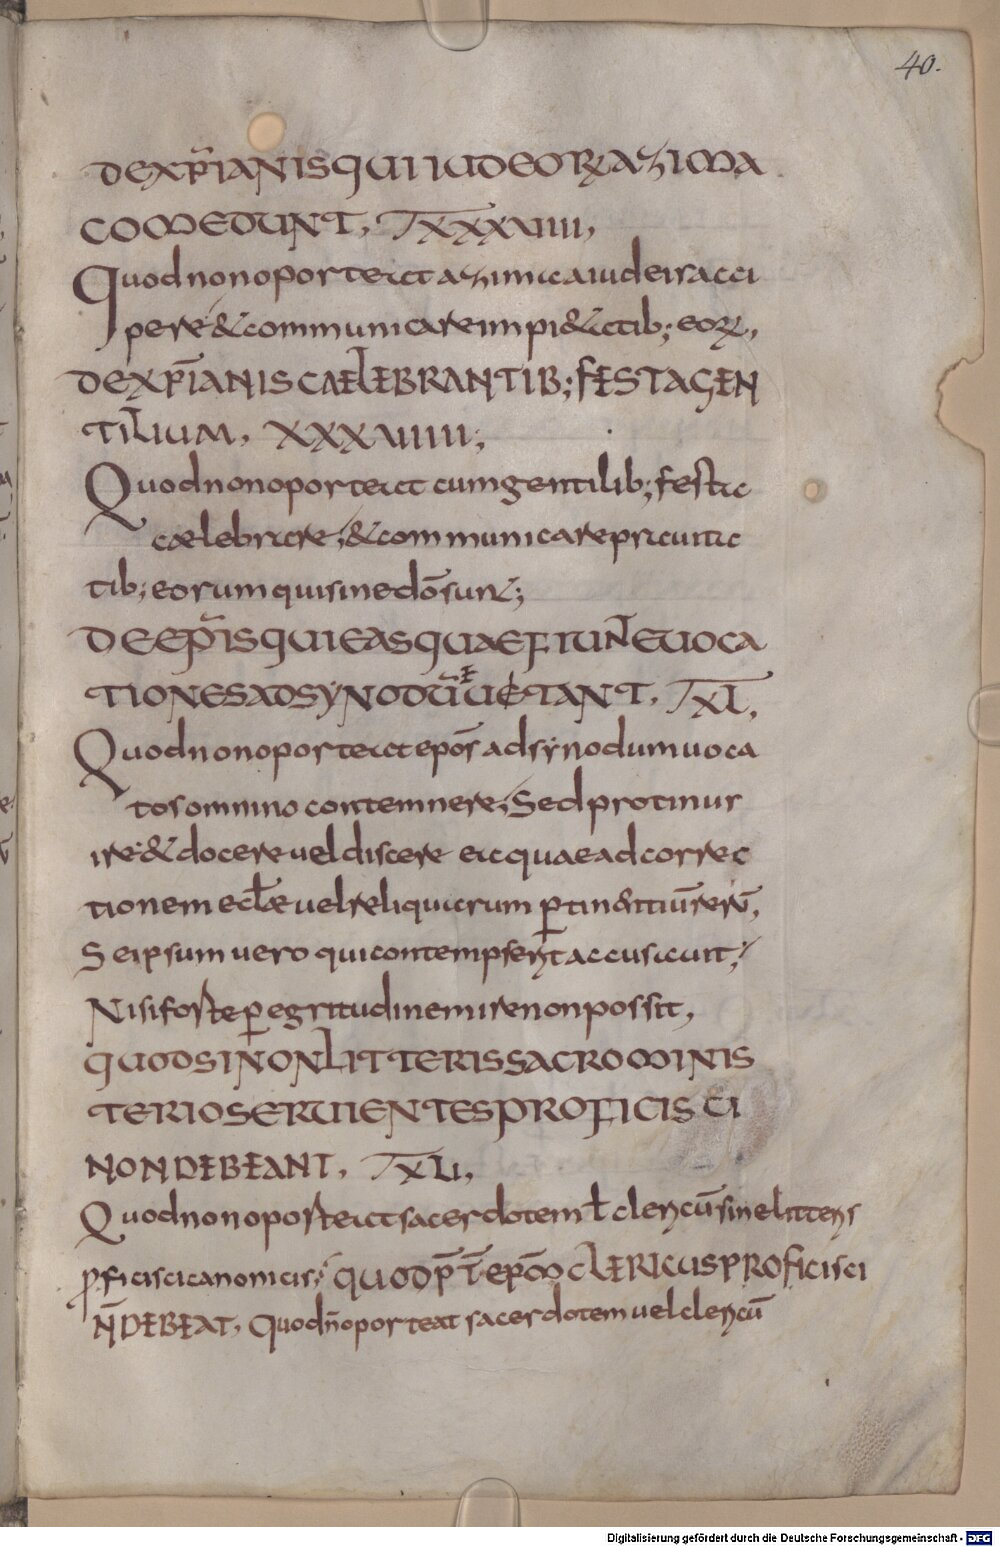 40.
DE XP̄IANIS QUI IUDEOR̄ AZIMA
COMEDUNT, T̄XXXVIIII,
Quod non oporteat azima a iudeis acci
pere & communicare impi&atib; eoꝝ,
DE XP̄IANIS CAELEBRANTIB; FESTA GEN
TILIUM, XXXVIIIII;
Quod non oporteat cum gentilib; festa
caelebrare, & communicare prauita
tib; eorum qui sine dō sunt;
DE EP̄IS QUI EAS QUAE FIUNT EUOCA
TIONES AD SYNODŪ UETANT, T̄XL,
Quod non oporteat epōs ad synodum uoca
tos omnino contemnere, Sed protinus
ire & docere uel discere ea quae ad correc
tionem eclæ uel reliquarum ꝑtin&atiū rerū,
Seipsum uero qui contempserit accusauit;
Nisi forte ꝑ egritudinem ire non possit,
QUOD SI NON LITTERIS SACRO MINIS
TERIO SERUIENTES PROFICISCI
NON DEBEANT, T̄XLI,
Quod non oporteat sacerdotem ł clericū sine litteris
ꝓficisci canonicis; QUOD P̄T EPM̄ CLERICUS PROFICISCI
N̄ DEBEAT, Quod n̄ oporteat sacerdotem uel clericū
Digitalisierung gefördert durch die Deutsche Forschungsgemeinschaft - DFG